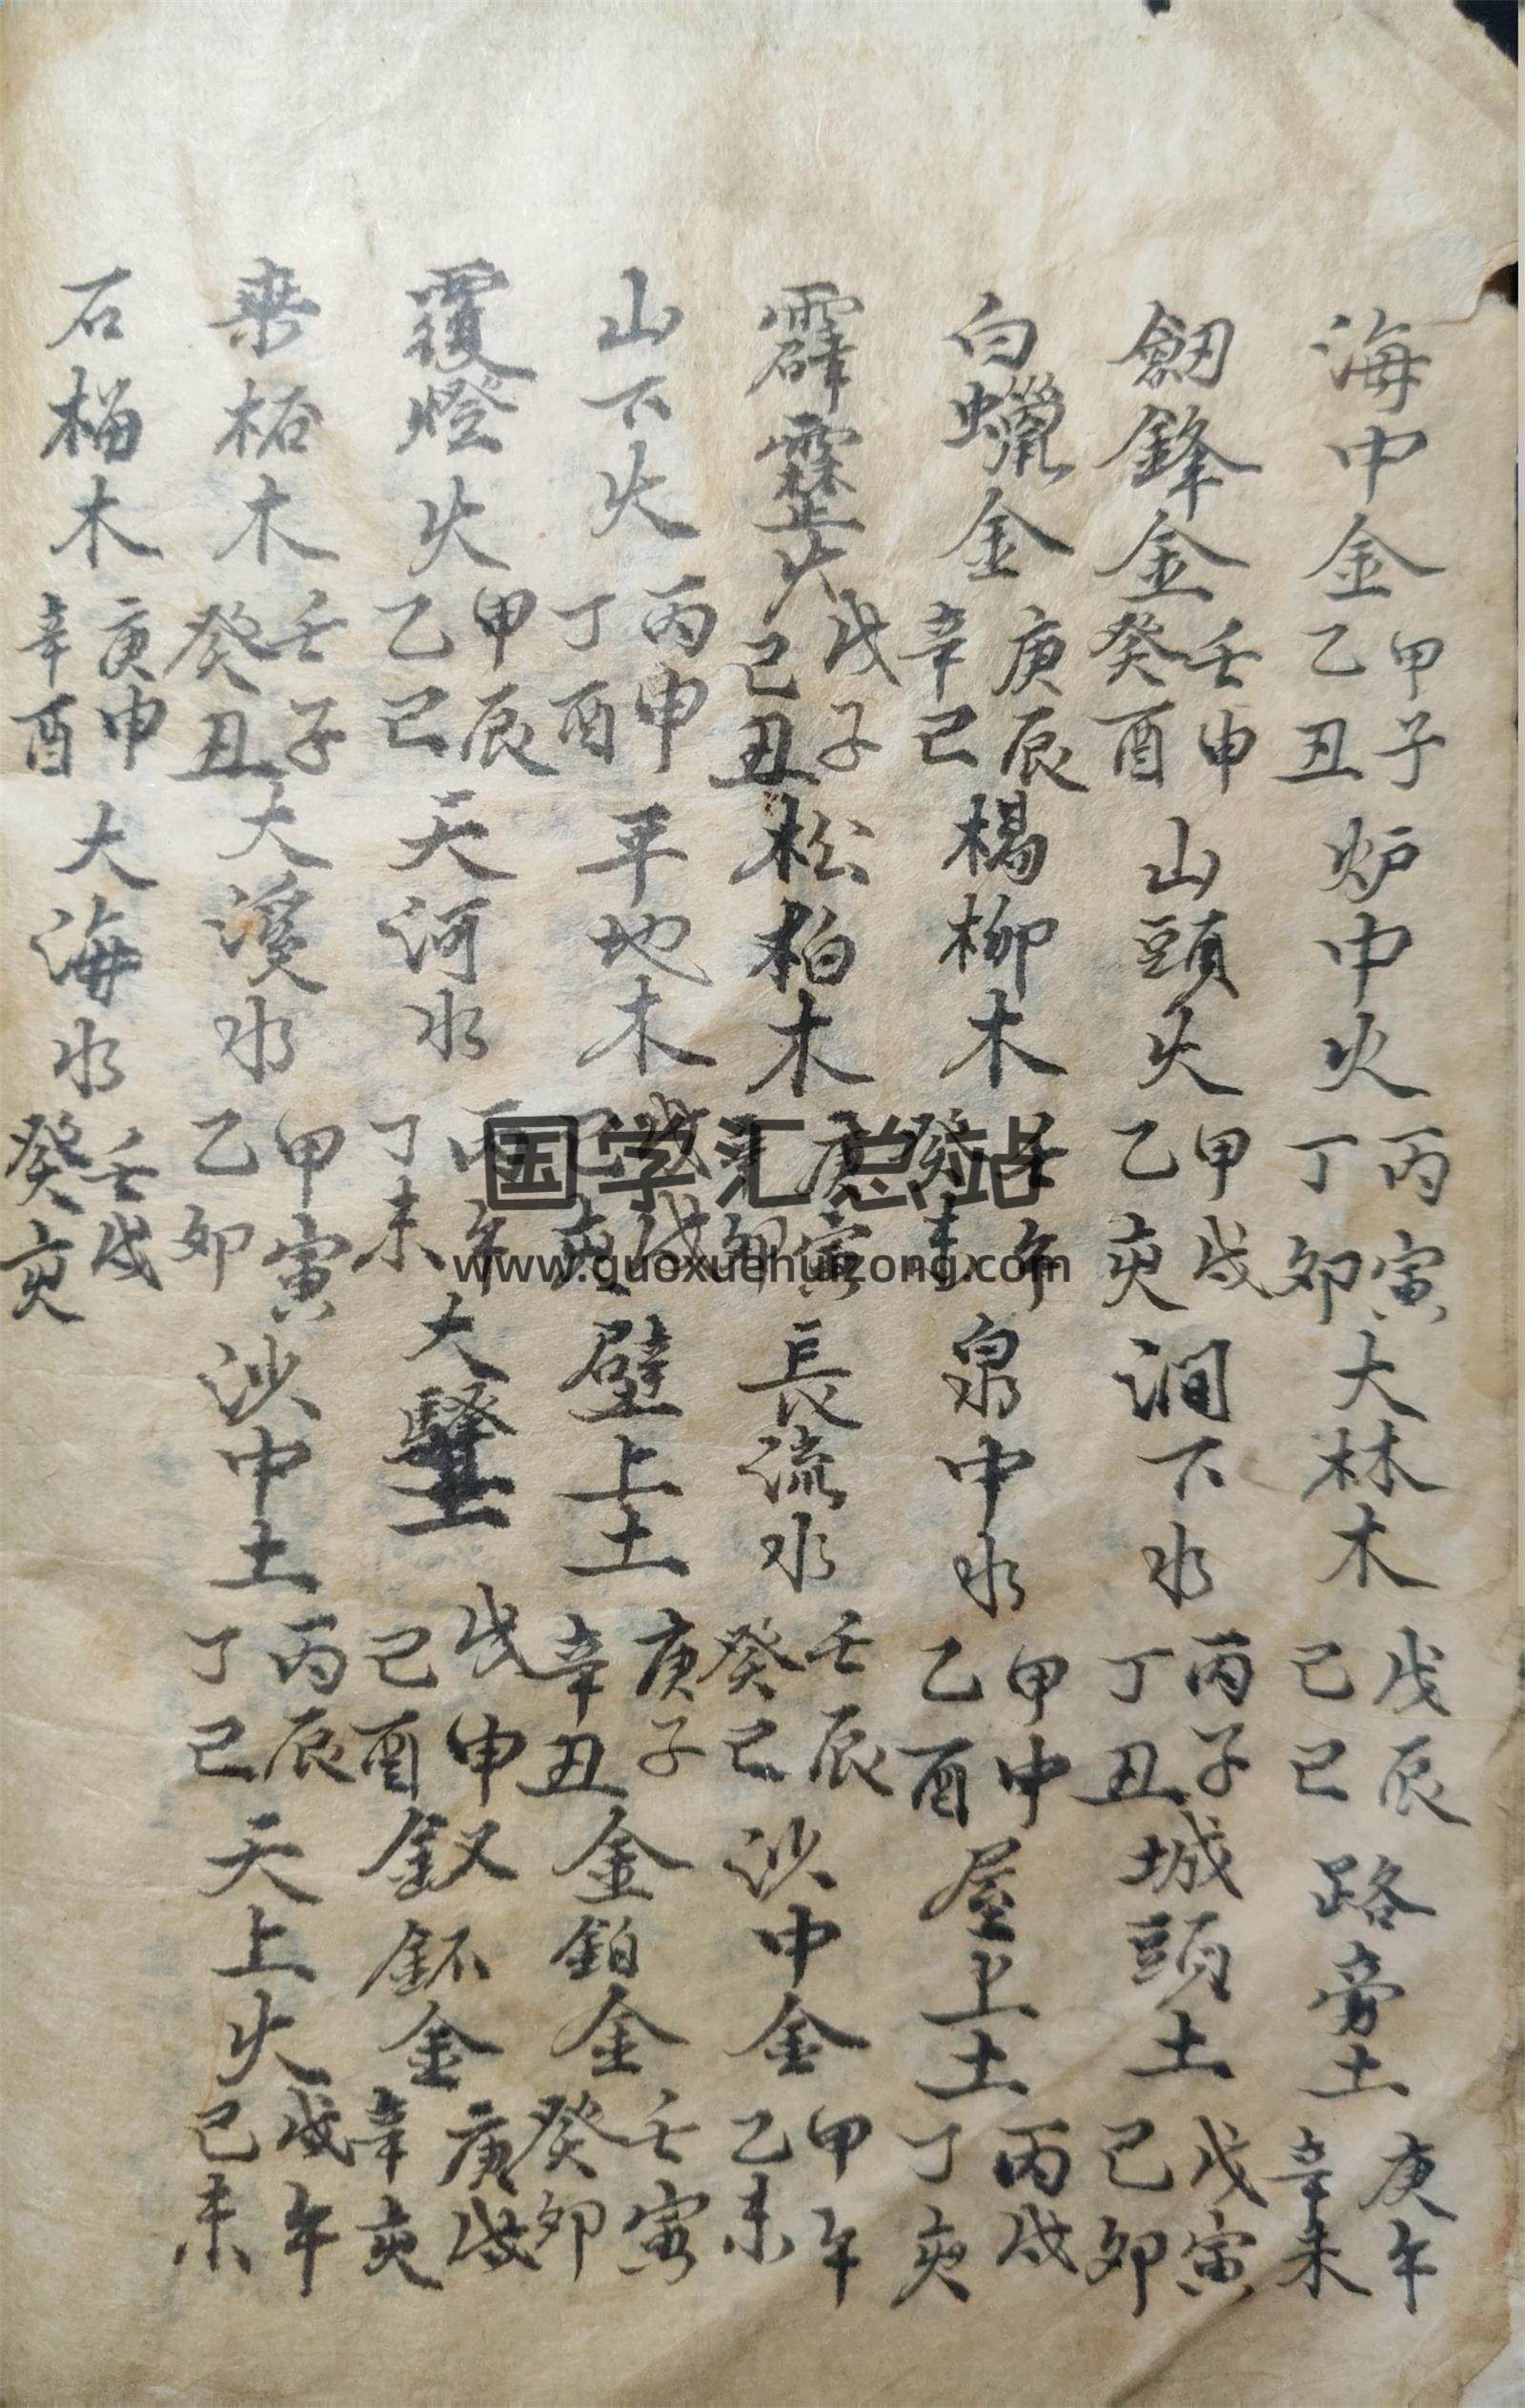 海中金甲子乙丑炉中火丙寅丁卯大林木戊辰己巳路旁土庚午辛未
劔鋒金壬申癸酉山頭火甲戌乙亥澗下水丙子丁丑城頭土戊寅己卯
白蠟金庚辰辛巳楊柳木壬午癸未泉中水甲申乙酉屋上土丙戌丁亥
霹靂火戊子己丑松柏木庚寅辛卯長流水壬辰癸巳沙中金甲午乙未
山下火丙申丁酉平地木戊戌己亥壁上土庚子辛丑金鉑金壬寅癸卯
覆燈火甲辰乙巳天河水丙午丁未大驿土戊申己酉釵釽金庚戌辛亥
桒柘木壬子癸丑大溪水甲寅乙卯沙中土丙辰丁巳天上火戊午己未
石榴木庚申辛酉大海水壬戌癸亥
国学汇总站
www.guoxuehuizong.com